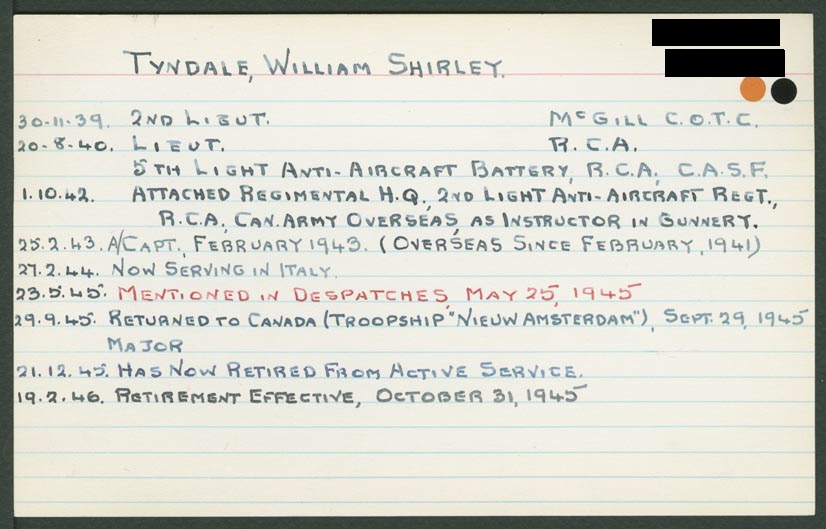 TYNDALE, WILLIAM SHIRLEY.
30-11-39. 2ND LIEUT. McGILL C.O.T.C.
20-8-40. LIEUT. R.C.A.
5TH LIGHT ANTI-AIRCRAFT BATTERY, R.C.A. C.A.S.F.
1.10.42. ATTACHED REGIMENTAL H.Q., 2ND LIGHT ANTI-AIRCRAFT REGT.,
R.C.A., CAN. ARMY OVERSEAS, AS INSTRUCTOR IN GUNNERY.
25.2.43. A/CAPT., FEBRUARY 1943. (OVERSEAS SINCE FEBRUARY, 1941)
27.2.44. NOW SERVING IN ITALY.
23.5.45. MENTIONED IN DESPATCHES, MAY 25, 1945
29.9.45. RETURNED TO CANADA (TROOPSHIP "NIEUW AMSTERDAM"), SEPT. 29, 1945
MAJOR
21.12.45. HAS NOW RETIRED FROM ACTIVE SERVICE.
19.2.46. RETIREMENT EFFECTIVE, OCTOBER 31, 1945